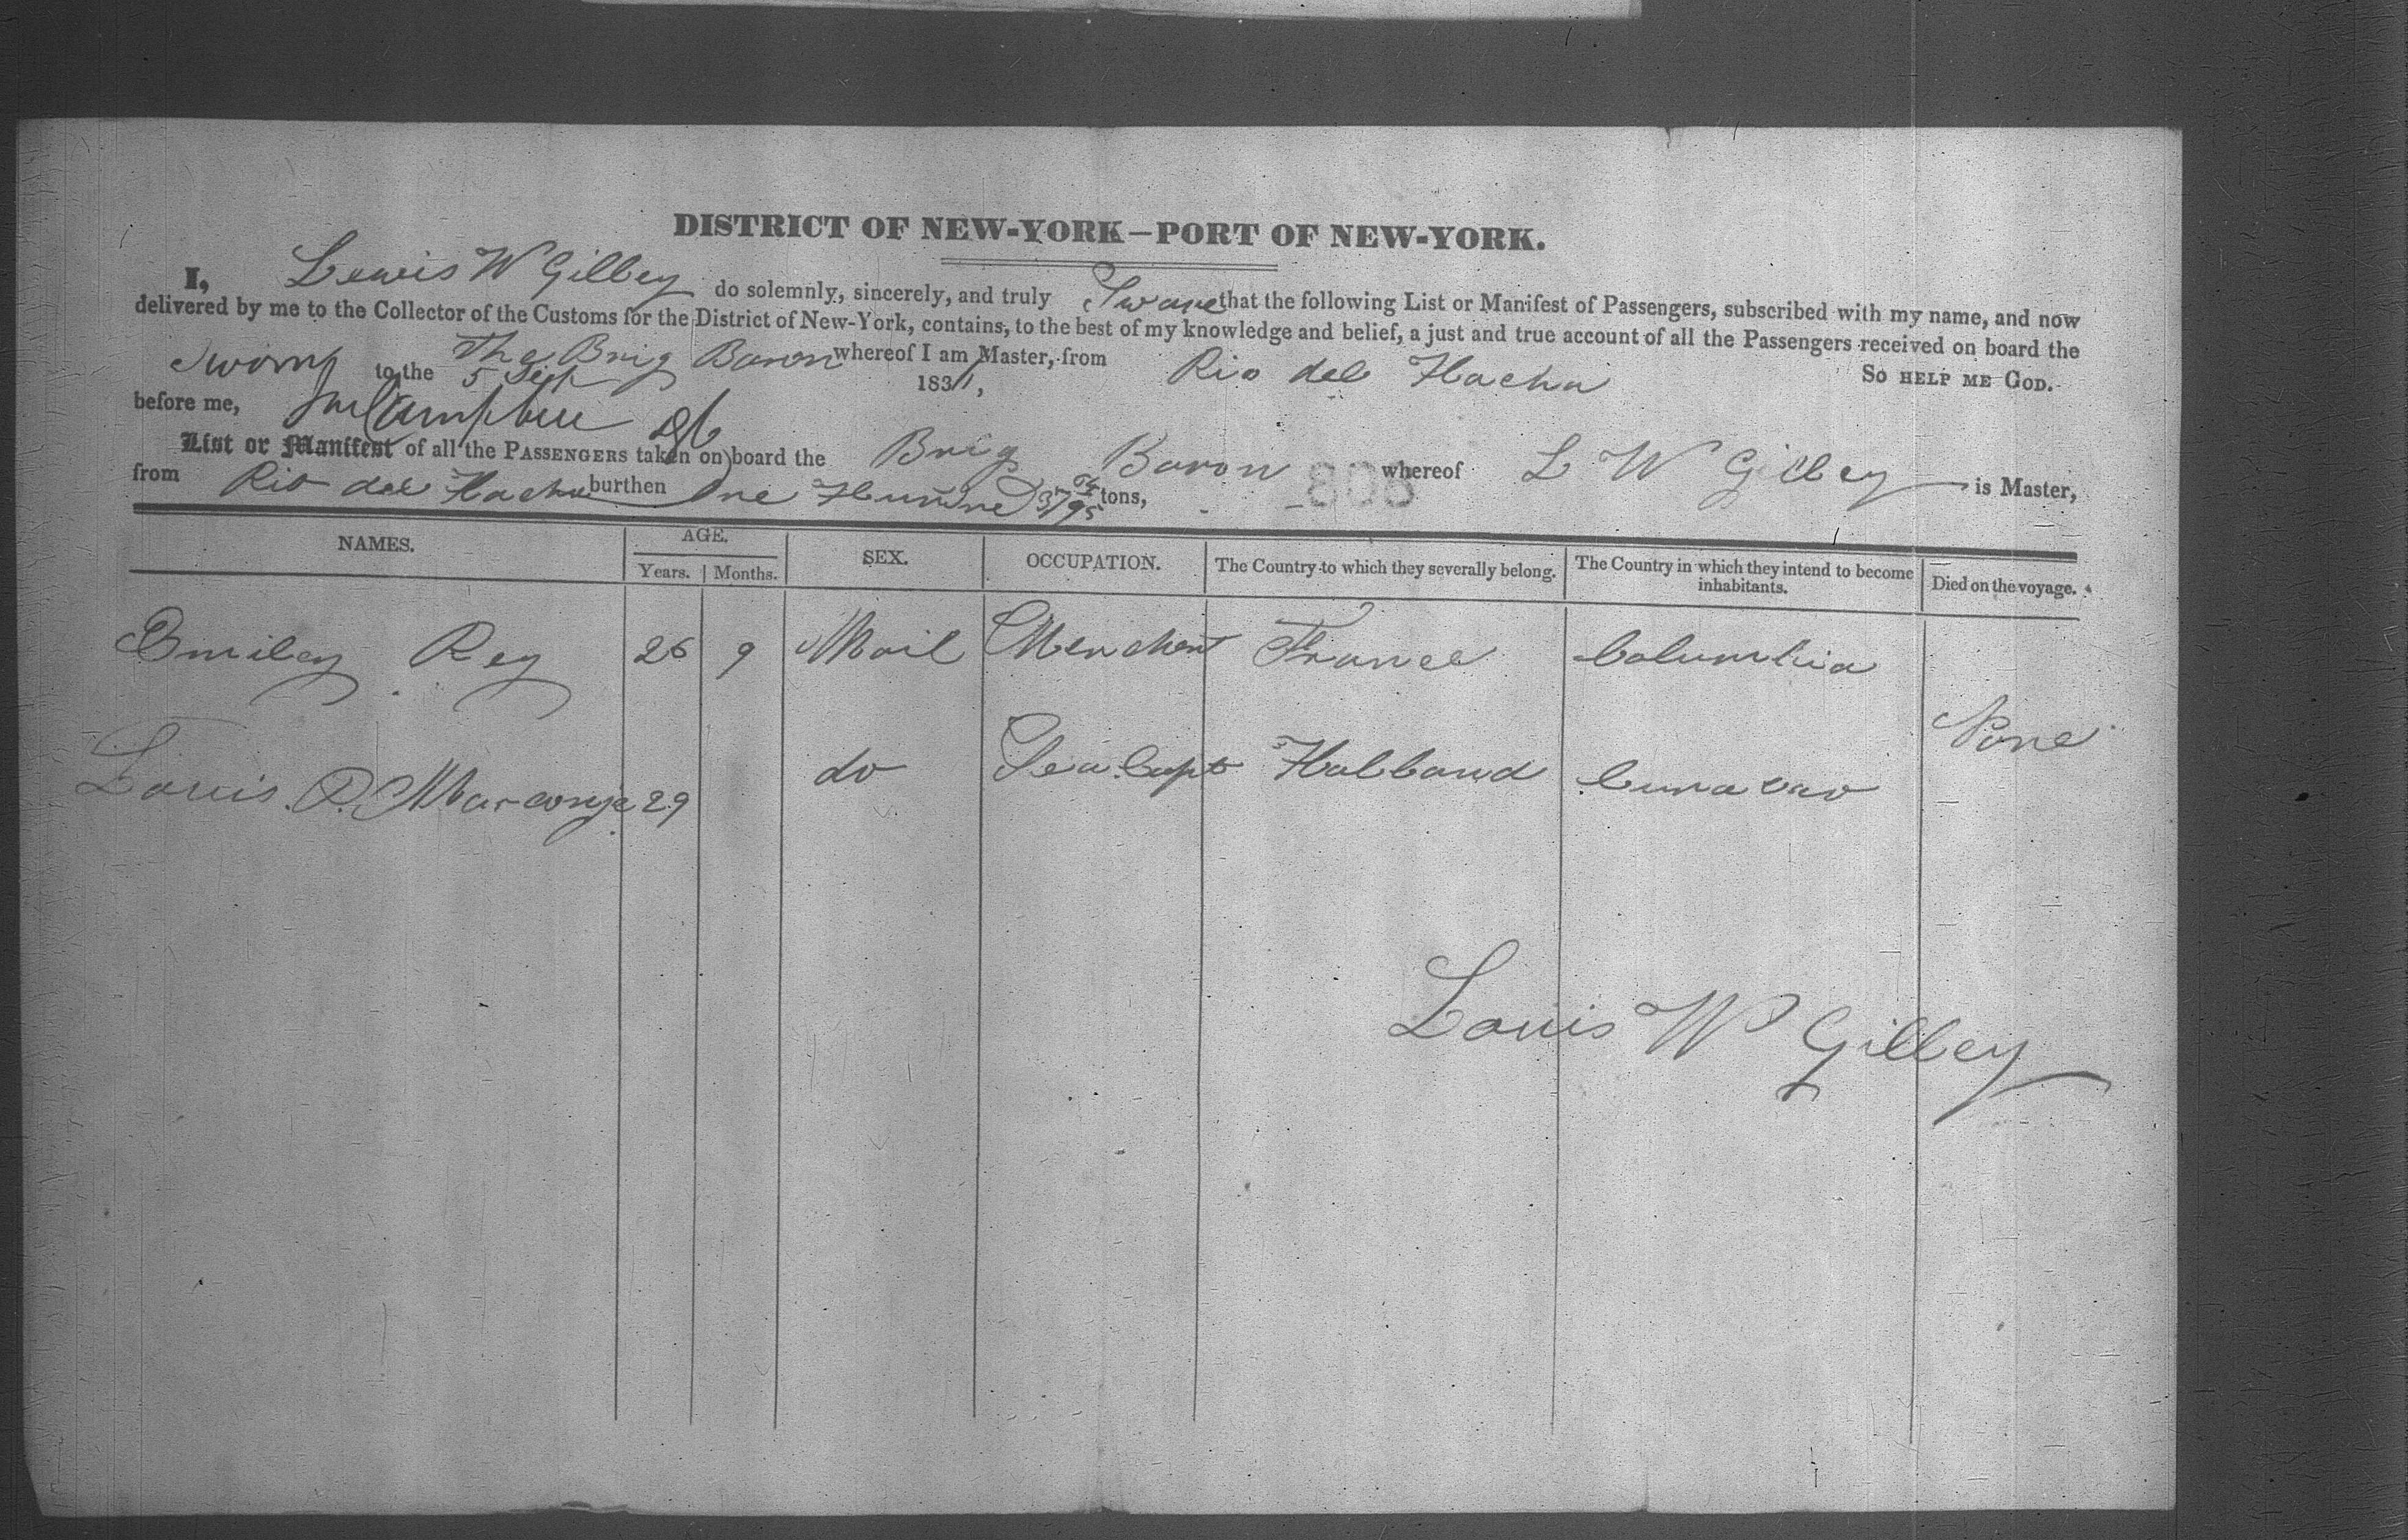 DISTRICT OF NEW-YORK—PORT OF NEW-YORK.
I, Lewis W Gilley do solemnly, sincerely, and truly Sware that the following List or Manifest of Passengers, subscribed with my name, and now
delivered by me to the Collector of the Customs for the District of New-York, contains, to the best of my knowledge and belief, a just and true account of all the Passengers received on board the
The Brig Baron whereof I am Master, from Rio del Hacha So HELP ME GOD.
Sworn to the 5 Sept 1831,
before me, Campbell
List or Manifest of all the PASSENGERS taken on board the Brig Baron whereof L W Gilley is Master,
from Rio del Hacha burthen One Hundred 37 95 tons,
NAMES. AGE. SEX. OCCUPATION. The Country to which they severally belong. The Country in which they intend to become inhabitants. Died on the voyage.
Years. Months.
Emiley Rey 26 9 Mail Merchent France Columbia
None
Louis P. Marconje 29 do Sea Capt Holland Curacao
Louis W Gilley